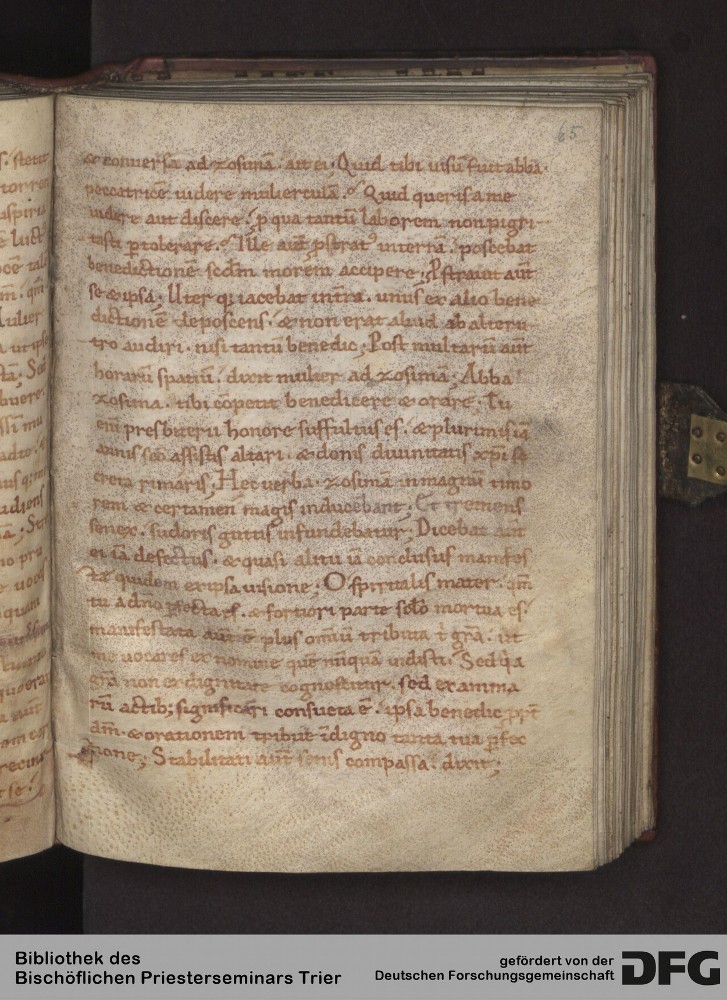 65
& conuersa ad zosimā. ait ei. Quid tibi uisū fuit abba.
peccatricē uidere mulierculā? Quid queris a me
uidere aut discere. ꝑ qua tantū laborem non pigri
tasti ꝑtolerare? Ille aūt ꝓstratꝰ in terrā. poscebat
benedictionē scdm̄ morem accipere; Ꝓstrauit aūt
se & ipsa; Uterqꝫ iacebat in t̄ra. unus ex alio bene
dictionē deposcens. & non erat aliud ab alteru
tro audiri. nisi tantū benedic; Post multarū aūt
horarū spatiū. dixit mulier ad zosimā; Abba
zosima. tibi cōpetit benedicere & orare. Tu
eni᷈ presbiterii honore suffultus es. & plurimis iā
annis scō assistis altari. & donis diuinitatis xp̄i se
creta rimaris; Hec uerba. zosimā in magnū timo
rem & certamen magis inducebant; Et tremens
senex. sudoris guttis infundebatur; Dicebat aūt
ei iā defectus. & quasi alitu iā conclusus manifes
ta es quidem ex ipsa uisione; O spiritalis mater. qm̄
tu ad dn̄o ꝓfecta es. & fortiori parte sclō mortua es.
manifestata aūt ē plus omniū tributa t̄ grā. ut
me uocares ex nomine quē nūquā uidisti. Sed qa
grā non ex dignitate cognoscitur. sed ex anima
rū actibꝫ significari consueta ē. ipsa benedic ꝓpt̄
dm̄. & orationem tribue īdigno tanta tua ꝑfec
tione; Stabilitati aūt senis compassa. dixit;
Bibliothek des
Bischöflichen Priesterseminars Trier
gefördert von der
Deutschen Forschungsgemeinschaft
DFG